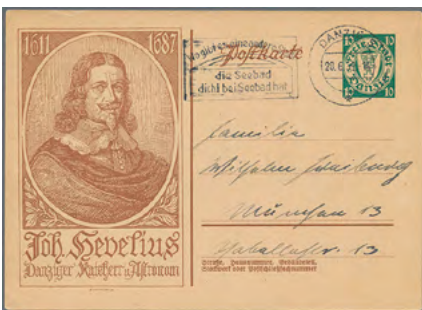 1611 1687
Joh. Hevelius
Danziger Ratsherr u. Astronom
Postkarte
die Seebad
dicht bei Seebad hat
DANZIG
20.6.
10 10
Freie Stadt
Danzig
10 10
Familie
Wilhelm
München 13
13
Straße, Hausnummer, Gebäudeteil,
Stockwerk oder Postschließfachnummer